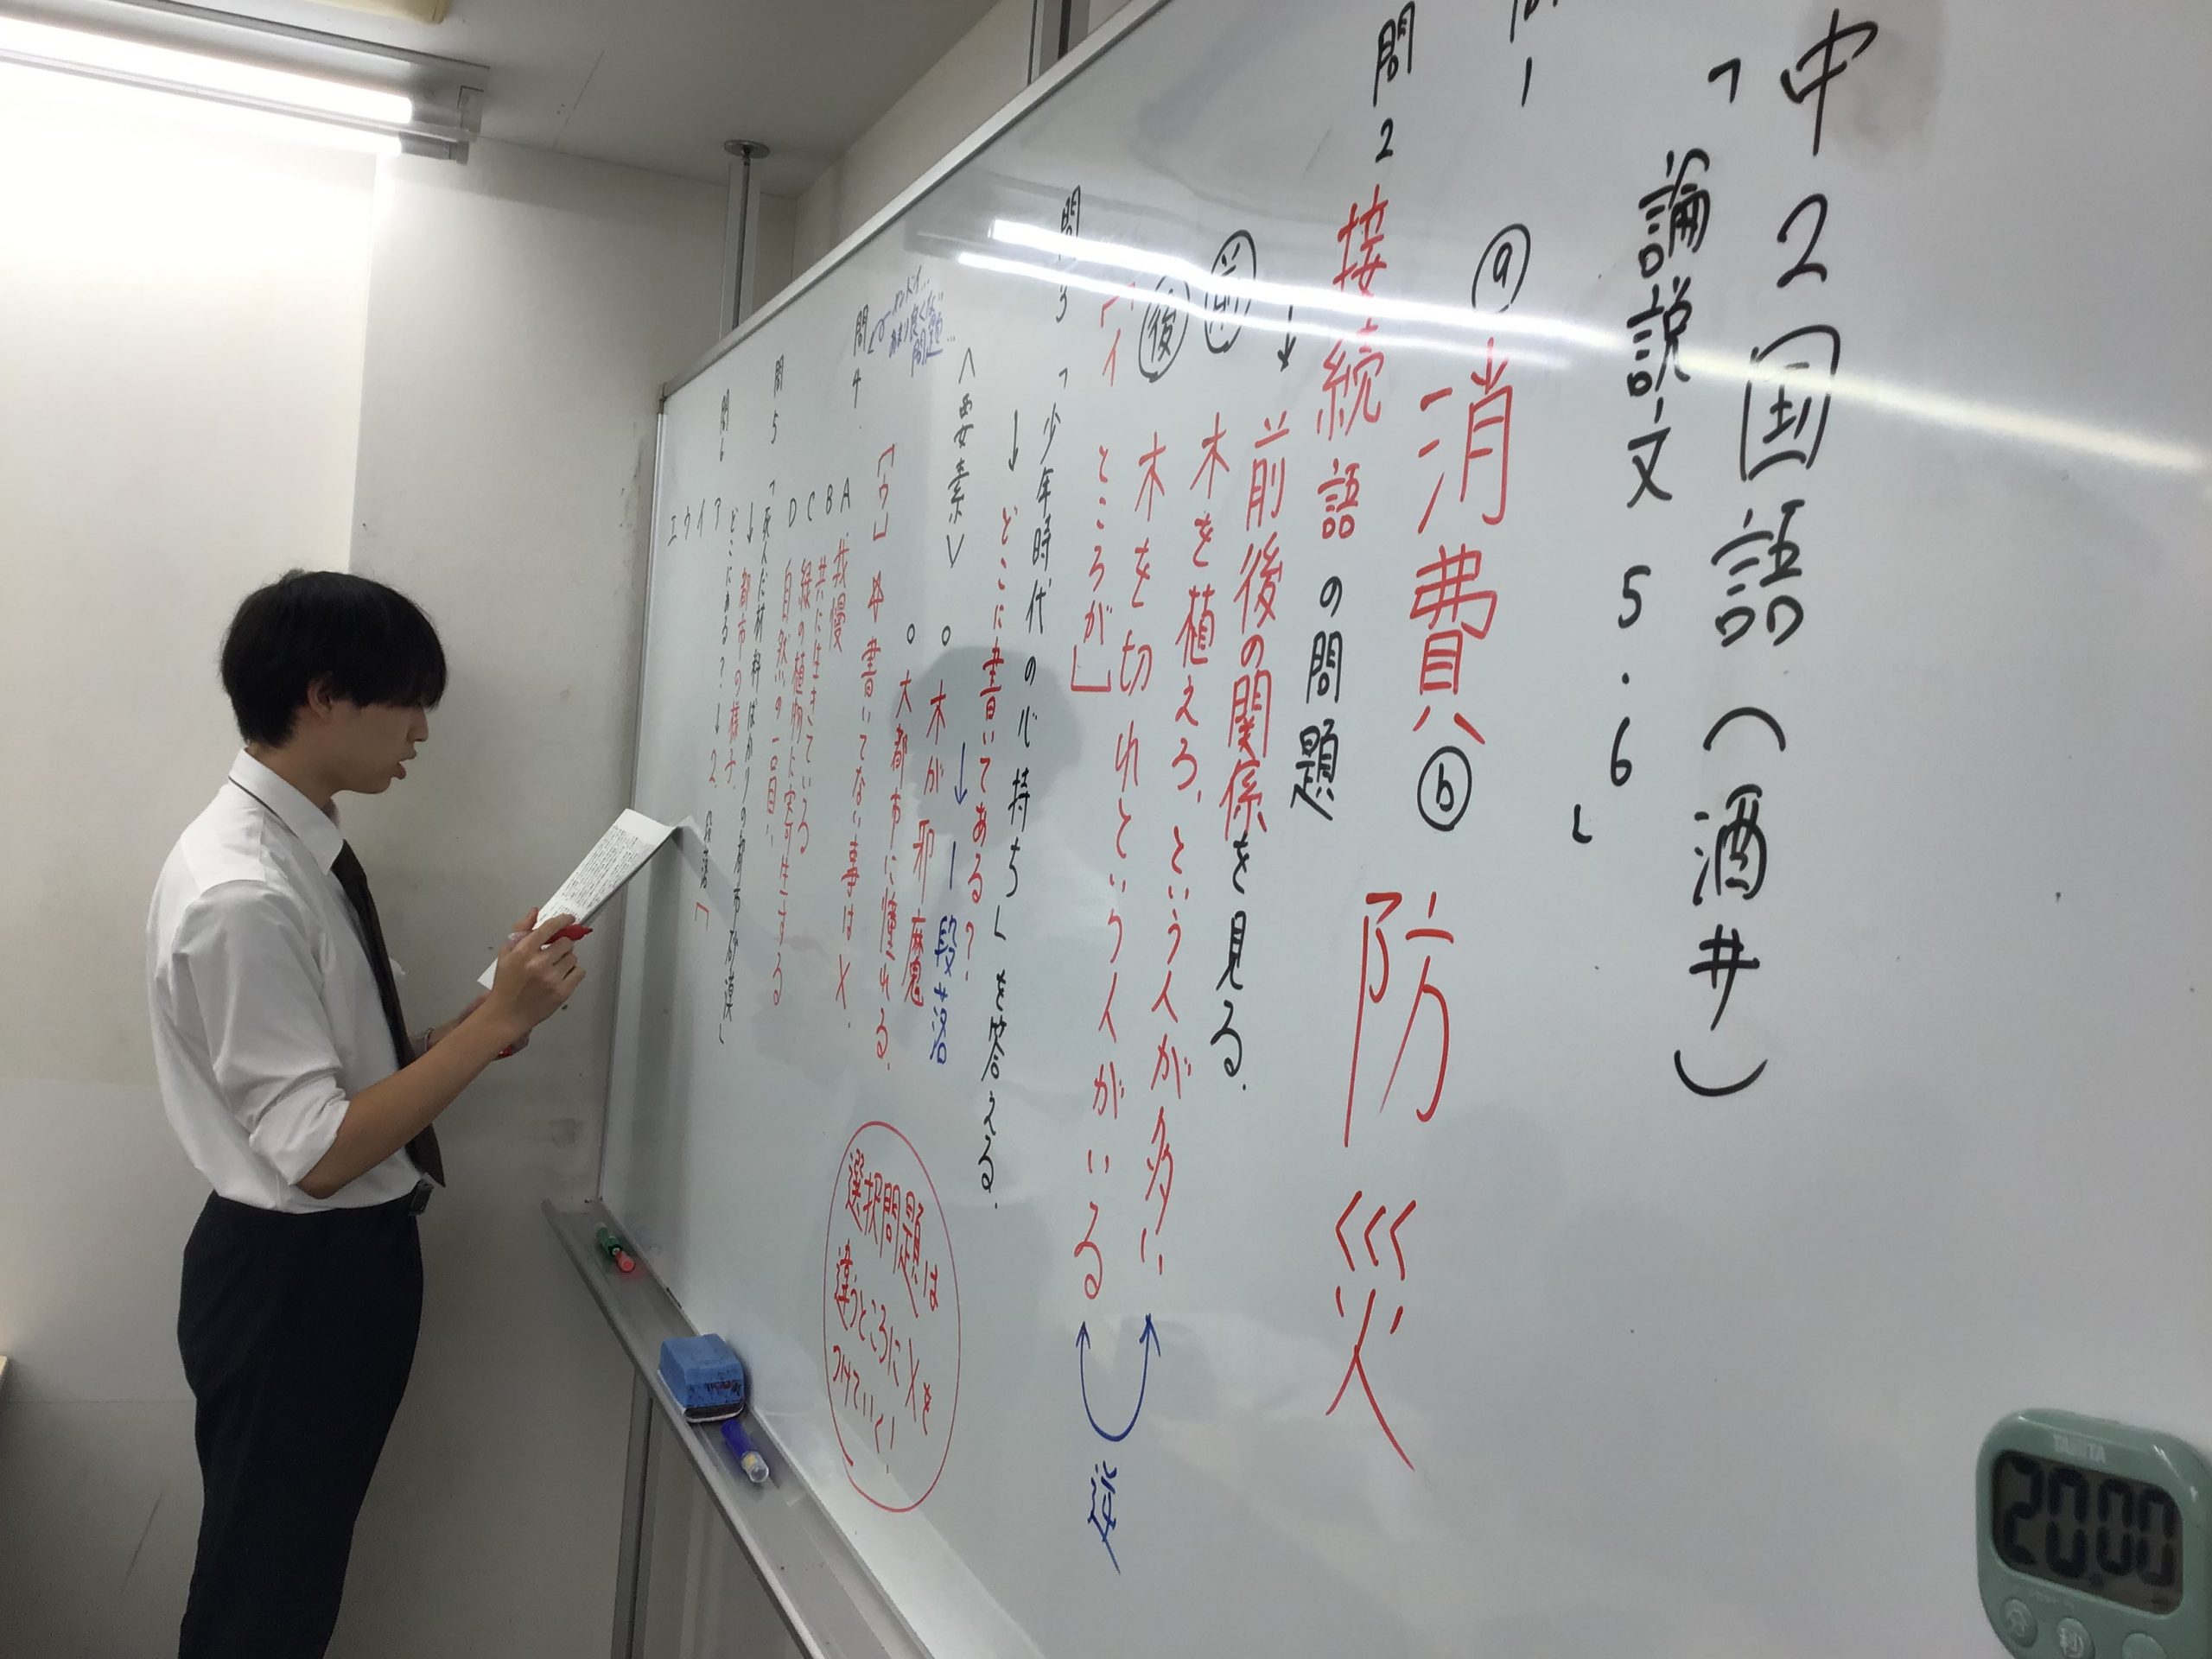 中2国語(酒井)
「論説文 5.6」
問1
ⓐ 消費 ⓑ 防災
問2 接続語の問題
↓ 前後の関係を見る.
前 木を植えろ、という人が多い
後 木を切れという人がいる
逆
「イ ところが」
問3 「少年時代の心持ち」を答える.
↓ どこに書いてある?
<要素> ↓ 1段落
○ 木が邪魔
○ 大都市に憧れる.
問4 「ウ」 書いてない事は×.
問題...
A 我慢
B 共に生きている
C 緑の植物
D 自然の一員
選択問題は
違うところに×を
つけていく!
問5 「死んだ材料ばかりの
↓ 都市の様子.
問6 どこにある?→2
ア
イ
ウ
エ
TANITA
20:00
分
秒